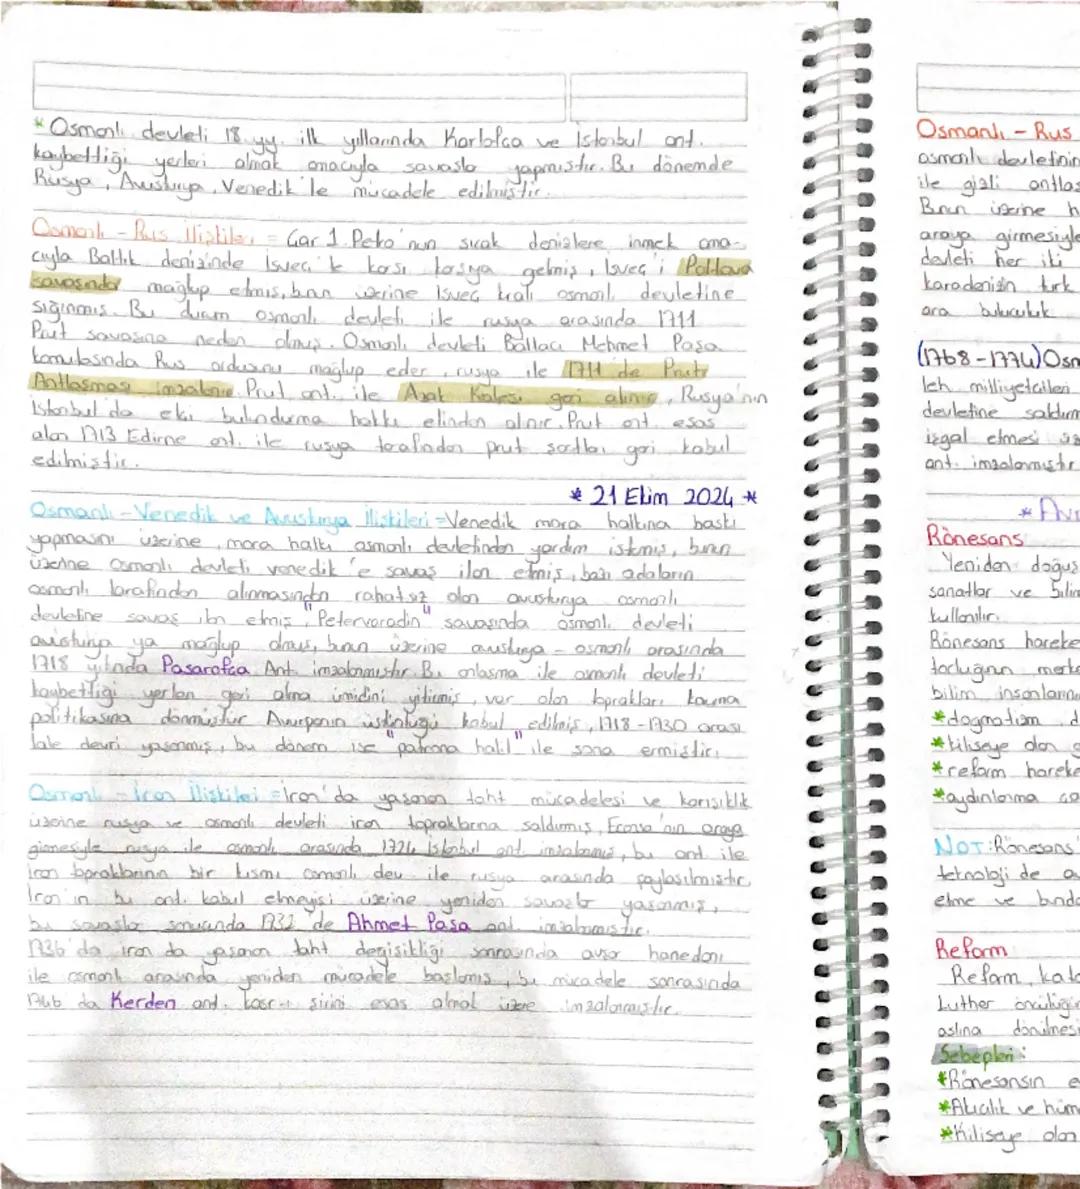 * Osmanlı devleti 18. yy. ilk yıllarında Karlofca ve İstanbul ant.
kaybettiği yerleri almak amacıyla savaşla yapmıştır. Bu dönemde
Rusya, Avusturya, Venedik'le mücadele edilmiştir.
Osmanlı - Rus İlişkileri = Çar 1. Petro'nun sıcak denizlere inmek ama-
cıyla Baltık denizinde İsveç'le karşı karşıya gelmiş, İsveç'i Poltava
savaşında mağlup etmiş, bunun üzerine İsveç kralı osmanlı devletine
sığınmış. Bu durum osmanlı devleti ile rusya arasında 1711
Prut savaşına neden olmuş. Osmanlı devleti Baltacı Mehmet Paşa
komutasında Rus ordusunu mağlup eder, rusya ile 1711'de Prut
Antlaşması imzalanır. Prut ant. ile Azak Kalesi geri alınır, Rusya'nın
İstanbul'da elçi bulundurma hakkı elinden alınır. Prut ant. esas
alan 1713 Edirne ant. ile rusya tarafından prut şartları geri kabul
edilmiştir.
* 21 Ekim 2024 *
Osmanlı - Venedik ve Avusturya İlişkileri = Venedik mora halkına baskı
yapmasını üzerine, mora halkı osmanlı devletinden yardım istemiş, bunun
üzerine Osmanlı devleti venedik'e savaş ilan etmiş, bazı adaların
osmanlı tarafından alınmasından rahatsız olan avusturya osmanlı
devletine savaş ilan etmiş, "Petervaradin" savaşında osmanlı devleti
avusturya ya mağlup olmuş, bunun üzerine avusturya - osmanlı arasında
1718 yılında Pasarofça Ant. imzalanmıştır. Bu anlaşma ile osmanlı devleti
kaybettiği yerleri geri alma ümidini yitirmiş, var olan toprakları koruma
politikasına dönmüştür Avrupanın üstünlüğü kabul edilmiş, 1718 - 1730 arası
lale devri yaşanmış, bu dönem ise "patrona halil" ile sona ermiştir.
Osmanlı - İran İlişkileri = İran'da yaşanan taht mücadelesi ve karışıklık
üzerine rusya ve osmanlı devleti iran topraklarına saldırmış, Fransa'nın araya
girmesiyle rusya ile osmanlı arasında 1724 İstanbul ant. imzalanmış, bu ant. ile
İran topraklarının bir kısmı osmanlı dev. ile rusya arasında paylaşılmıştır.
İran'ın bu ant. kabul etmeyişi üzerine yeniden savaşlar yaşanmış,
bu savaşlar sonucunda 1732'de Ahmet Paşa ant. imzalanmıştır.
1736'da iran da yaşanan taht değişikliği sonrasında avşar hanedanı
ile osmanlı arasında yeniden mücadele başlamış, bu mücadele sonrasında
1746 da Kerden ant. kasr-ı şirini esas almak üzere imzalanmıştır.
Osmanlı - Rus
osmanlı devletinin
ile gizli antlaş
Bunun üzerine
araya girmesiyle
devleti her iki
karadenizin türk
ara buluculuk
(1768 - 1774) Osm
leh milliyetçileri
devletine saldırm
işgal etmesi üz
ant. imzalanmıştır
Rönesans
Yeniden doğuş
sanatlar ve bilim
kullanılır.
Rönesans hareke
bilim insanlarının
* dogmatizm
* kiliseye olan g
* reform hareke
* aydınlanma ça
NOT: Rönesans'
teknoloji de
etme ve
Reform
Reform, kato
Luther öncülüğü
aslına dönülmesi
Sebepleri:
* Rönesansın e
* Akılcılık ve hüm
* Kiliseye olan